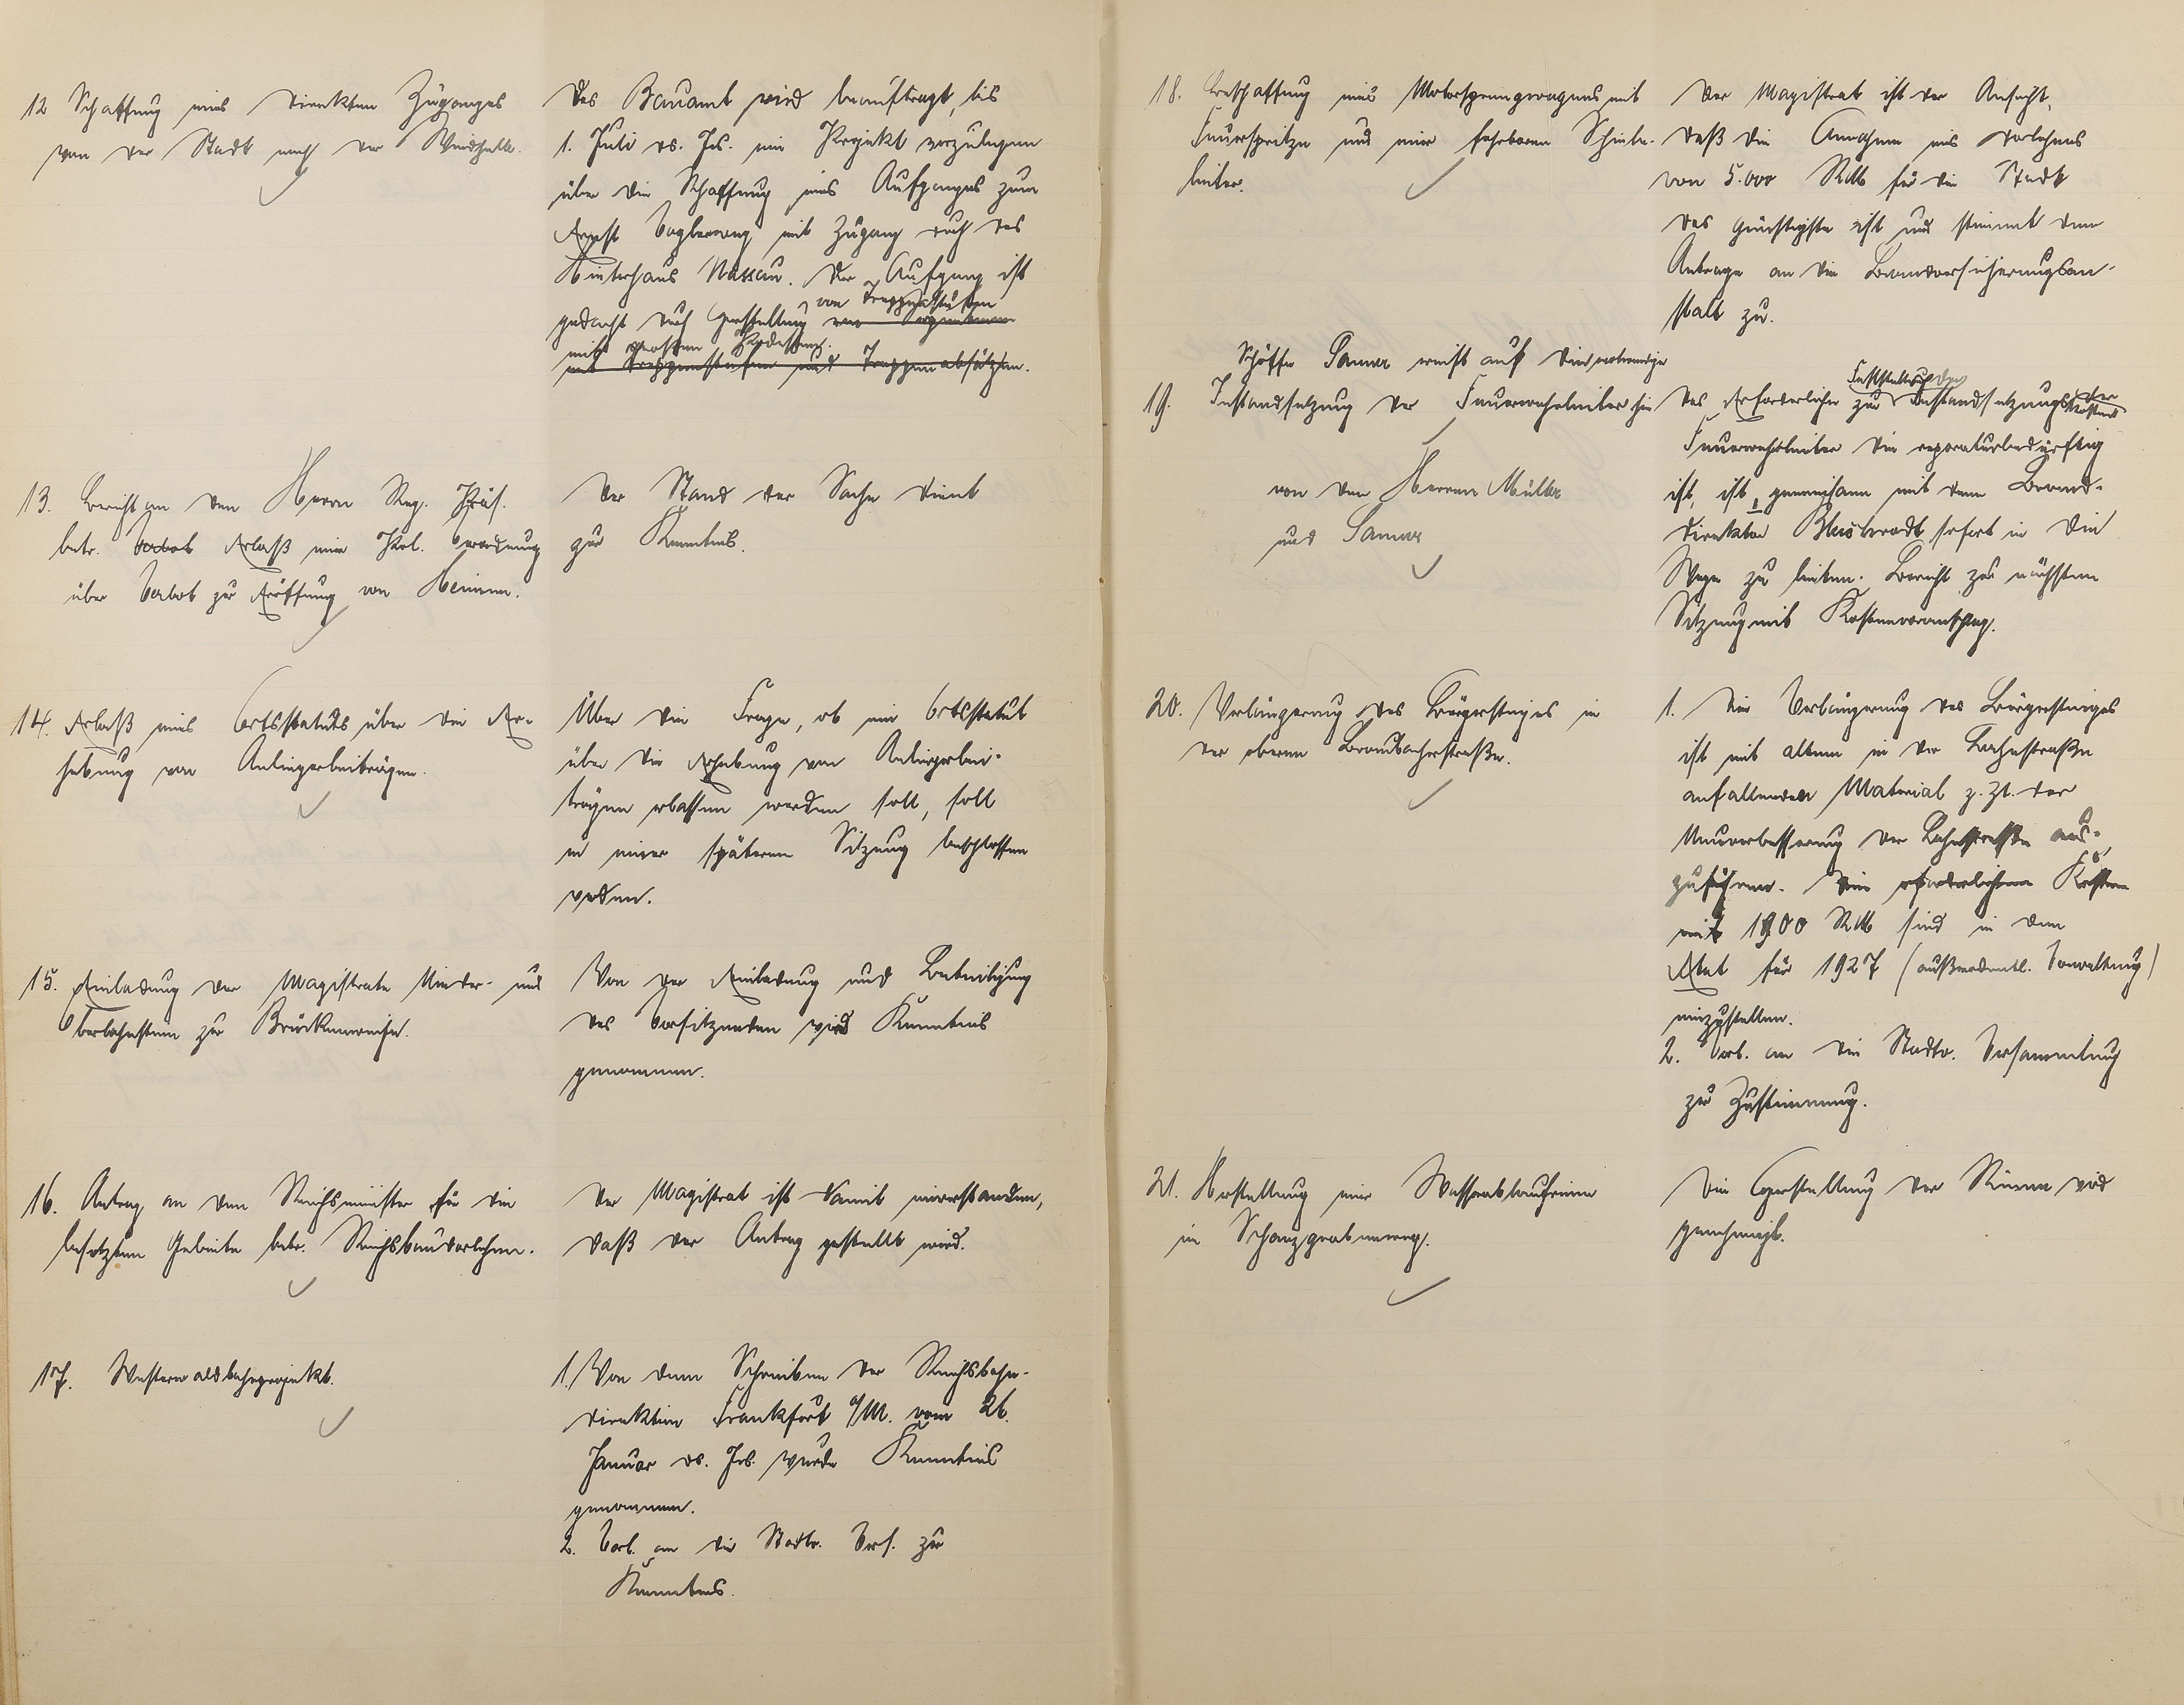 12 Schaffung eines direkten Zuganges
von der Stadt nach der Weidhalle.
Das Bauamt wird beauftragt, bis
1. Juli ds. Js. ein Projekt vorzulegen
über die Schaffung eines Aufganges zum
Ernst Voglerweg mit Zugang durch das
Hinterhaus Nassau. Der Aufgang ist
von Treppenstufen
gedacht durch Herstellung von
mit grossen Podesten.
mit Treppenstufen und Treppenabsätzen.
13. Bericht an den Herrn Reg. Präs.
betr. Erlaß einer Pol. Verordnung
über Verbot zur Eröffnung von Heimen.
Der Stand der Sache dient
zur Kenntnis.
14. Erlaß eines Ortsstatuts über die Er-
hebung von Anliegerbeiträgen.
Über die Frage, ob ein Ortsstatut
über die Erhebung von Anliegerbei-
trägen erlassen werden soll, soll
in einer späteren Sitzung beschlossen
werden.
15. Einladung der Magistrate Nieder- und
Oberlahnstein zur Brückenweihe.
Von der Einladung und Beteiligung
des Vorsitzenden wird Kenntnis
genommen.
16. Antrag an den Reichsminister für die
besetzten Gebiete betr. Reichsbaudarlehen.
Der Magistrat ist damit einverstanden,
daß der Antrag gestellt wird.
17. Westerwaldbahnprojekt.
1. Von dem Schreiben der Reichsbahn-
direktion Frankfurt a/M. vom 26.
Januar ds. Js. wurde Kenntnis
genommen.
2. Vorl. an die Stadtv. Vers. zur
Kenntnis.
18. Beschaffung eines Motorsprengwagens mit
Feuerspritze und einer fahrbaren Schiebe-
leiter.
Der Magistrat ist der Ansicht,
daß die Annahme eines Darlehens
von 5.000 RM für die Stadt
das günstigste ist und stimmt dem
Antrage an die Brandversicherungsan-
stalt zu.
Schöffe Sauer weist auf die notwendige
19. Instandsetzung der Feuerwehrleiter hin
von den Herren Müller
und Sauer
Feststellung der
Das Erforderliche zur Instandsetzungskosten der
Feuerwehrleiter die reparaturbedürftig
ist, ist gemeinsam mit dem Brand-
direktor sofort in die
Wege zu leiten. Bericht zur nächsten
Sitzung mit Kostenvoranschlag.
20. Verlängerung des Bürgersteiges in
der oberen Braubacherstraße.
1. Die Verlängerung des Bürgersteiges
ist mit altem in der Lahnstraße
anfallenden Material z. Zt. der
Neuverbesserung der Lahnstraße aus-
zuführen. Die erforderlichen Kosten
mit 1900 RM sind in den
Etat für 1927 (außerordentl. Verwaltung)
einzustellen.
2. Vorl. an die Stadtv. Versammlung
zur Zustimmung.
21. Herstellung einer Wasserablaufrinne
im Schanzgrabenweg.
Die Herstellung der Rinne wird
genehmigt.